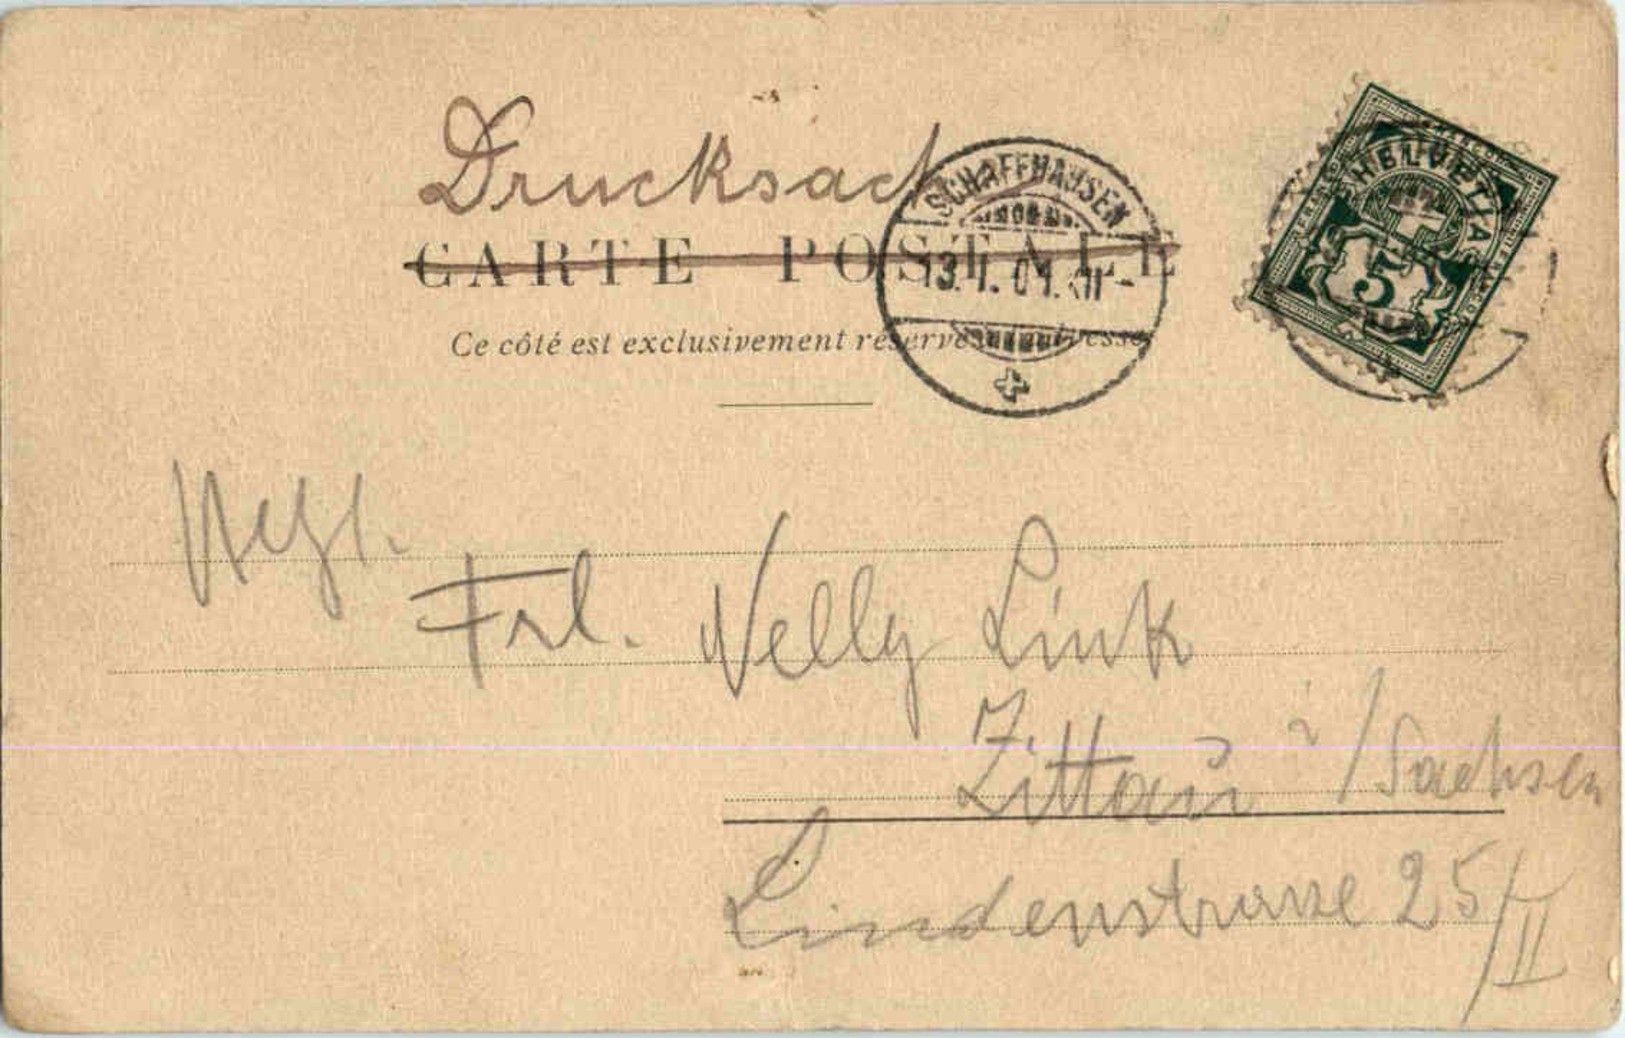 Drucksach
CARTE POSTALE
Ce côté est exclusivement réservé
SCHAFFHAUSEN
HELVETIA
5
Frl. Nelly Link
Zittau i/Sachsen
Lindenstrasse 25/II